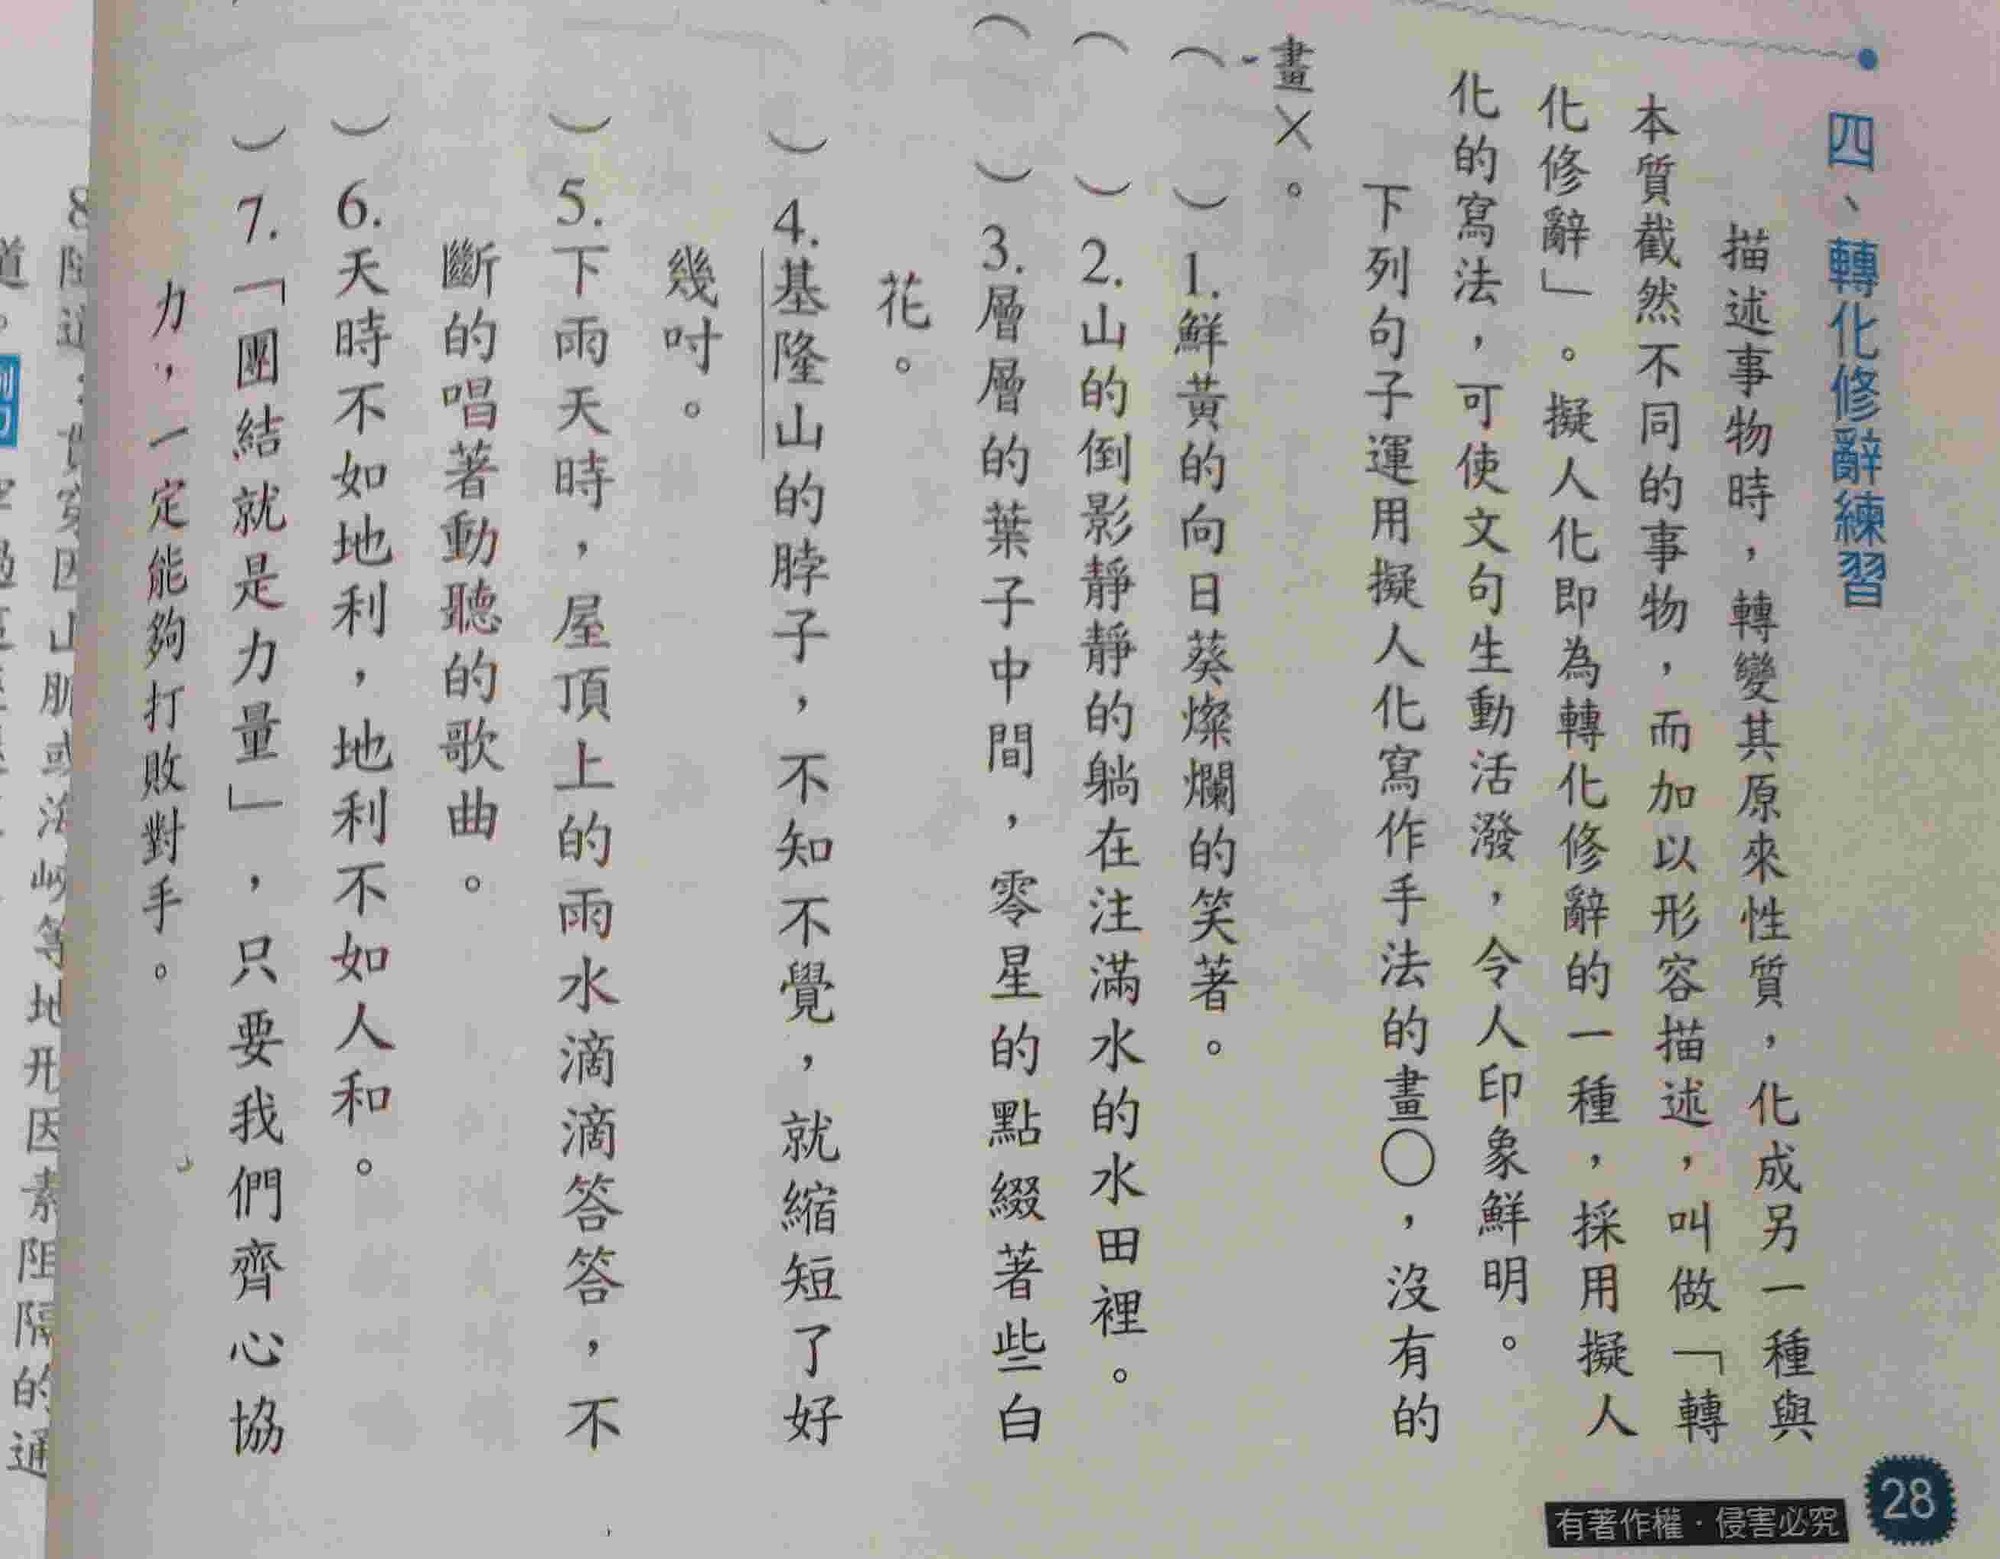 四、轉化修辭練習
描述事物時，轉變其原來性質，化成另一種與
本質截然不同的事物，而加以形容描述，叫做「轉
化修辭」。擬人化即為轉化修辭的一種，採用擬人
化的寫法，可使文句生動活潑，令人印象鮮明。
下列句子運用擬人化寫作手法的畫○，沒有的
畫×。
（ ）1.鮮黃的向日葵燦爛的笑著。
（ ）2.山的倒影靜靜的躺在注滿水的水田裡。
（ ）3.層層的葉子中間，零星的點綴著些白
花。
）4.基隆山的脖子，不知不覺，就縮短了好
幾吋。
）5.下雨天時，屋頂上的雨水滴滴答答，不
斷的唱著動聽的歌曲。
）6.天時不如地利，地利不如人和。
）7.「團結就是力量」，只要我們齊心協
力，一定能夠打敗對手。
有著作權．侵害必究
28
山脈或海峽等地形因素阻隔的通
道。